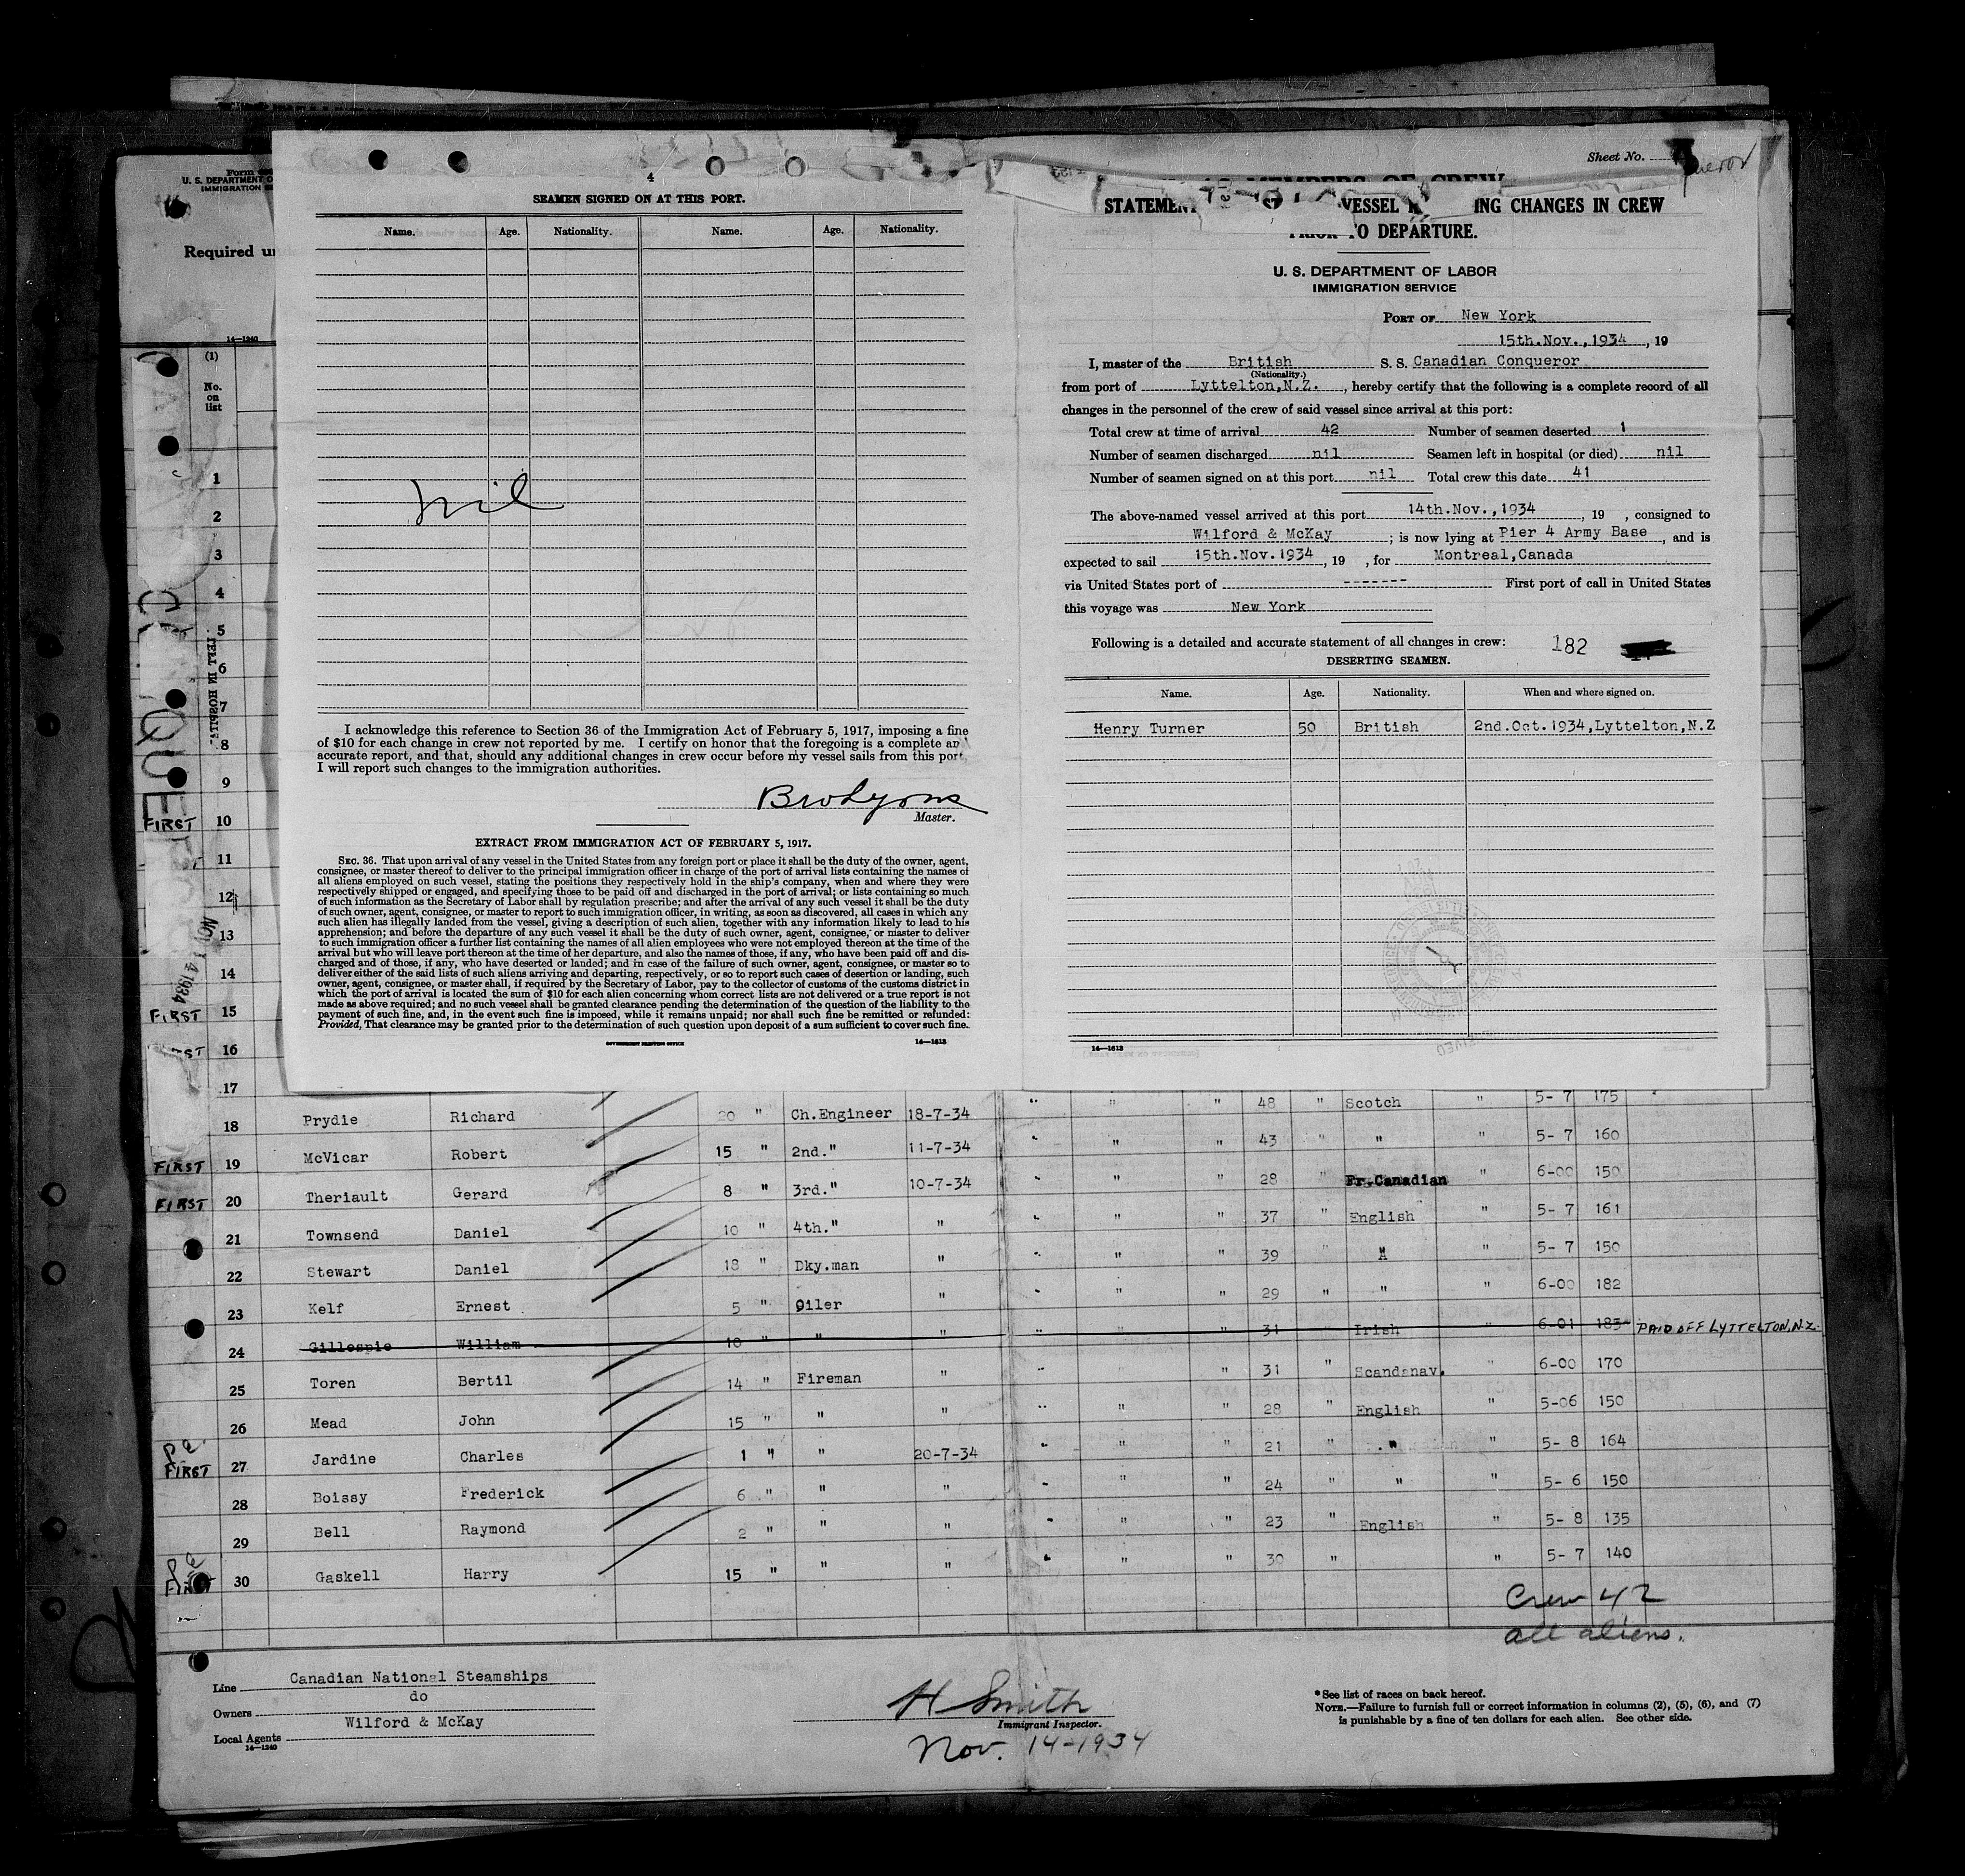 4
SEAMEN SIGNED ON AT THIS PORT.
Name. Age. Nationality. Name. Age. Nationality.
nil
I acknowledge this reference to Section 36 of the Immigration Act of February 5, 1917, imposing a fine
of $10 for each change in crew not reported by me. I certify on honor that the foregoing is a complete an
accurate report, and that, should any additional changes in crew occur before my vessel sails from this port,
I will report such changes to the immigration authorities.
Master.
EXTRACT FROM IMMIGRATION ACT OF FEBRUARY 5, 1917.
SEC. 36. That upon arrival of any vessel in the United States from any foreign port or place it shall be the duty of the owner, agent,
consignee, or master thereof to deliver to the principal immigration officer in charge of the port of arrival lists containing the names of
all aliens employed on such vessel, stating the positions they respectively hold in the ship's company, when and where they were
respectively shipped or engaged, and specifying those to be paid off and discharged in the port of arrival; or lists containing so much
of such information as the Secretary of Labor shall by regulation prescribe; and after the arrival of any such vessel it shall be the duty
of such owner, agent, consignee, or master to report to such immigration officer, in writing, as soon as discovered, all cases in which any
such alien has illegally landed from the vessel, giving a description of such alien, together with any information likely to lead to his
apprehension; and before the departure of any such vessel it shall be the duty of such owner, agent, consignee, or master to deliver
to such immigration officer a further list containing the names of all alien employees who were not employed thereon at the time of the
arrival but who will leave port thereon at the time of her departure, and also the names of those, if any, who have been paid off and dis-
charged and of those, if any, who have deserted or landed; and in case of the failure of such owner, agent, consignee, or master so to
deliver either of the said lists of such aliens arriving and departing, respectively, or so to report such cases of desertion or landing, such
owner, agent, consignee, or master shall, if required by the Secretary of Labor, pay to the collector of customs of the customs district in
which the port of arrival is located the sum of $10 for each alien concerning whom correct lists are not delivered or a true report is not
made as above required; and no such vessel shall be granted clearance pending the determination of the question of the liability to the
payment of such fine, and, in the event such fine is imposed, while it remains unpaid; nor shall such fine be remitted or refunded:
Provided, That clearance may be granted prior to the determination of such question upon deposit of a sum sufficient to cover such fine.
GOVERNMENT PRINTING OFFICE 14—1613
Sheet No.
MEMBERS OF CREW
STATEMEN VESSEL ING CHANGES IN CREW
PRIOR TO DEPARTURE.
U. S. DEPARTMENT OF LABOR
IMMIGRATION SERVICE
PORT OF New York
15th.Nov.,1934, 19
I, master of the British S. S. Canadian Conqueror
(Nationality.)
from port of Lyttelton,N.Z., hereby certify that the following is a complete record of all
changes in the personnel of the crew of said vessel since arrival at this port:
Total crew at time of arrival 42 Number of seamen deserted 1
Number of seamen discharged nil Seamen left in hospital (or died) nil
Number of seamen signed on at this port nil Total crew this date 41
The above-named vessel arrived at this port 14th.Nov.,1934, 19 , consigned to
Wilford & McKay; is now lying at Pier 4 Army Base, and is
expected to sail 15th.Nov.1934, 19 , for Montreal,Canada
via United States port of ------- First port of call in United States
this voyage was New York
Following is a detailed and accurate statement of all changes in crew: 182
DESERTING SEAMEN.
Name. Age. Nationality. When and where signed on.
Henry Turner 50 British 2nd.Oct.1934,Lyttelton,N.Z
14—1613
Form
U. S. DEPARTMENT O
IMMIGRATION SE
Required un
14—1240
(1)
No.
on
list
LEFT IN HOSPITAL
NOV 14 1934
1
2
3
4
5
6
7
8
9
FIRST 10
11
12
13
14
FIRST 15
16
17
18 Prydie Richard 20 " Ch.Engineer 18-7-34 " " " 48 " Scotch " 5- 7 175
FIRST 19 McVicar Robert 15 " 2nd." 11-7-34 " " " 43 " " " 5- 7 160
FIRST 20 Theriault Gerard 8 " 3rd." 10-7-34 " " " 28 " Fr.Canadian " 6-00 150
21 Townsend Daniel 10 " 4th." " " " " 37 " English " 5- 7 161
22 Stewart Daniel 18 " Dky.man " " " " 39 " " " 5- 7 150
23 Kelf Ernest 5 " Oiler " " " 29 " " " 6-00 182
24 Gillespie William 10 " " " " " " 31 Irish " 6-01 185 PAID OFF LYTTELTON, N.Z.
25 Toren Bertil 14 " Fireman " " " 31 " Scandanav. " 6-00 170
26 Mead John 15 " " " " " " 28 " English " 5-06 150
FIRST 27 Jardine Charles 1 " " 20-7-34 " " " 21 " " " 5- 8 164
28 Boissy Frederick 6 " " " " " 24 " " " 5- 6 150
29 Bell Raymond 2 " " " " " " 23 " English " 5- 8 135
FIRST 30 Gaskell Harry 15 " " " " " " 30 " " 5- 7 140
Crew 42
all aliens.
Line Canadian National Steamships
Owners do
Local Agents Wilford & McKay
14—1240
H Smith
Immigrant Inspector.
Nov. 14-1934
*See list of races on back hereof.
NOTE.—Failure to furnish full or correct information in columns (2), (5), (6), and (7)
is punishable by a fine of ten dollars for each alien. See other side.